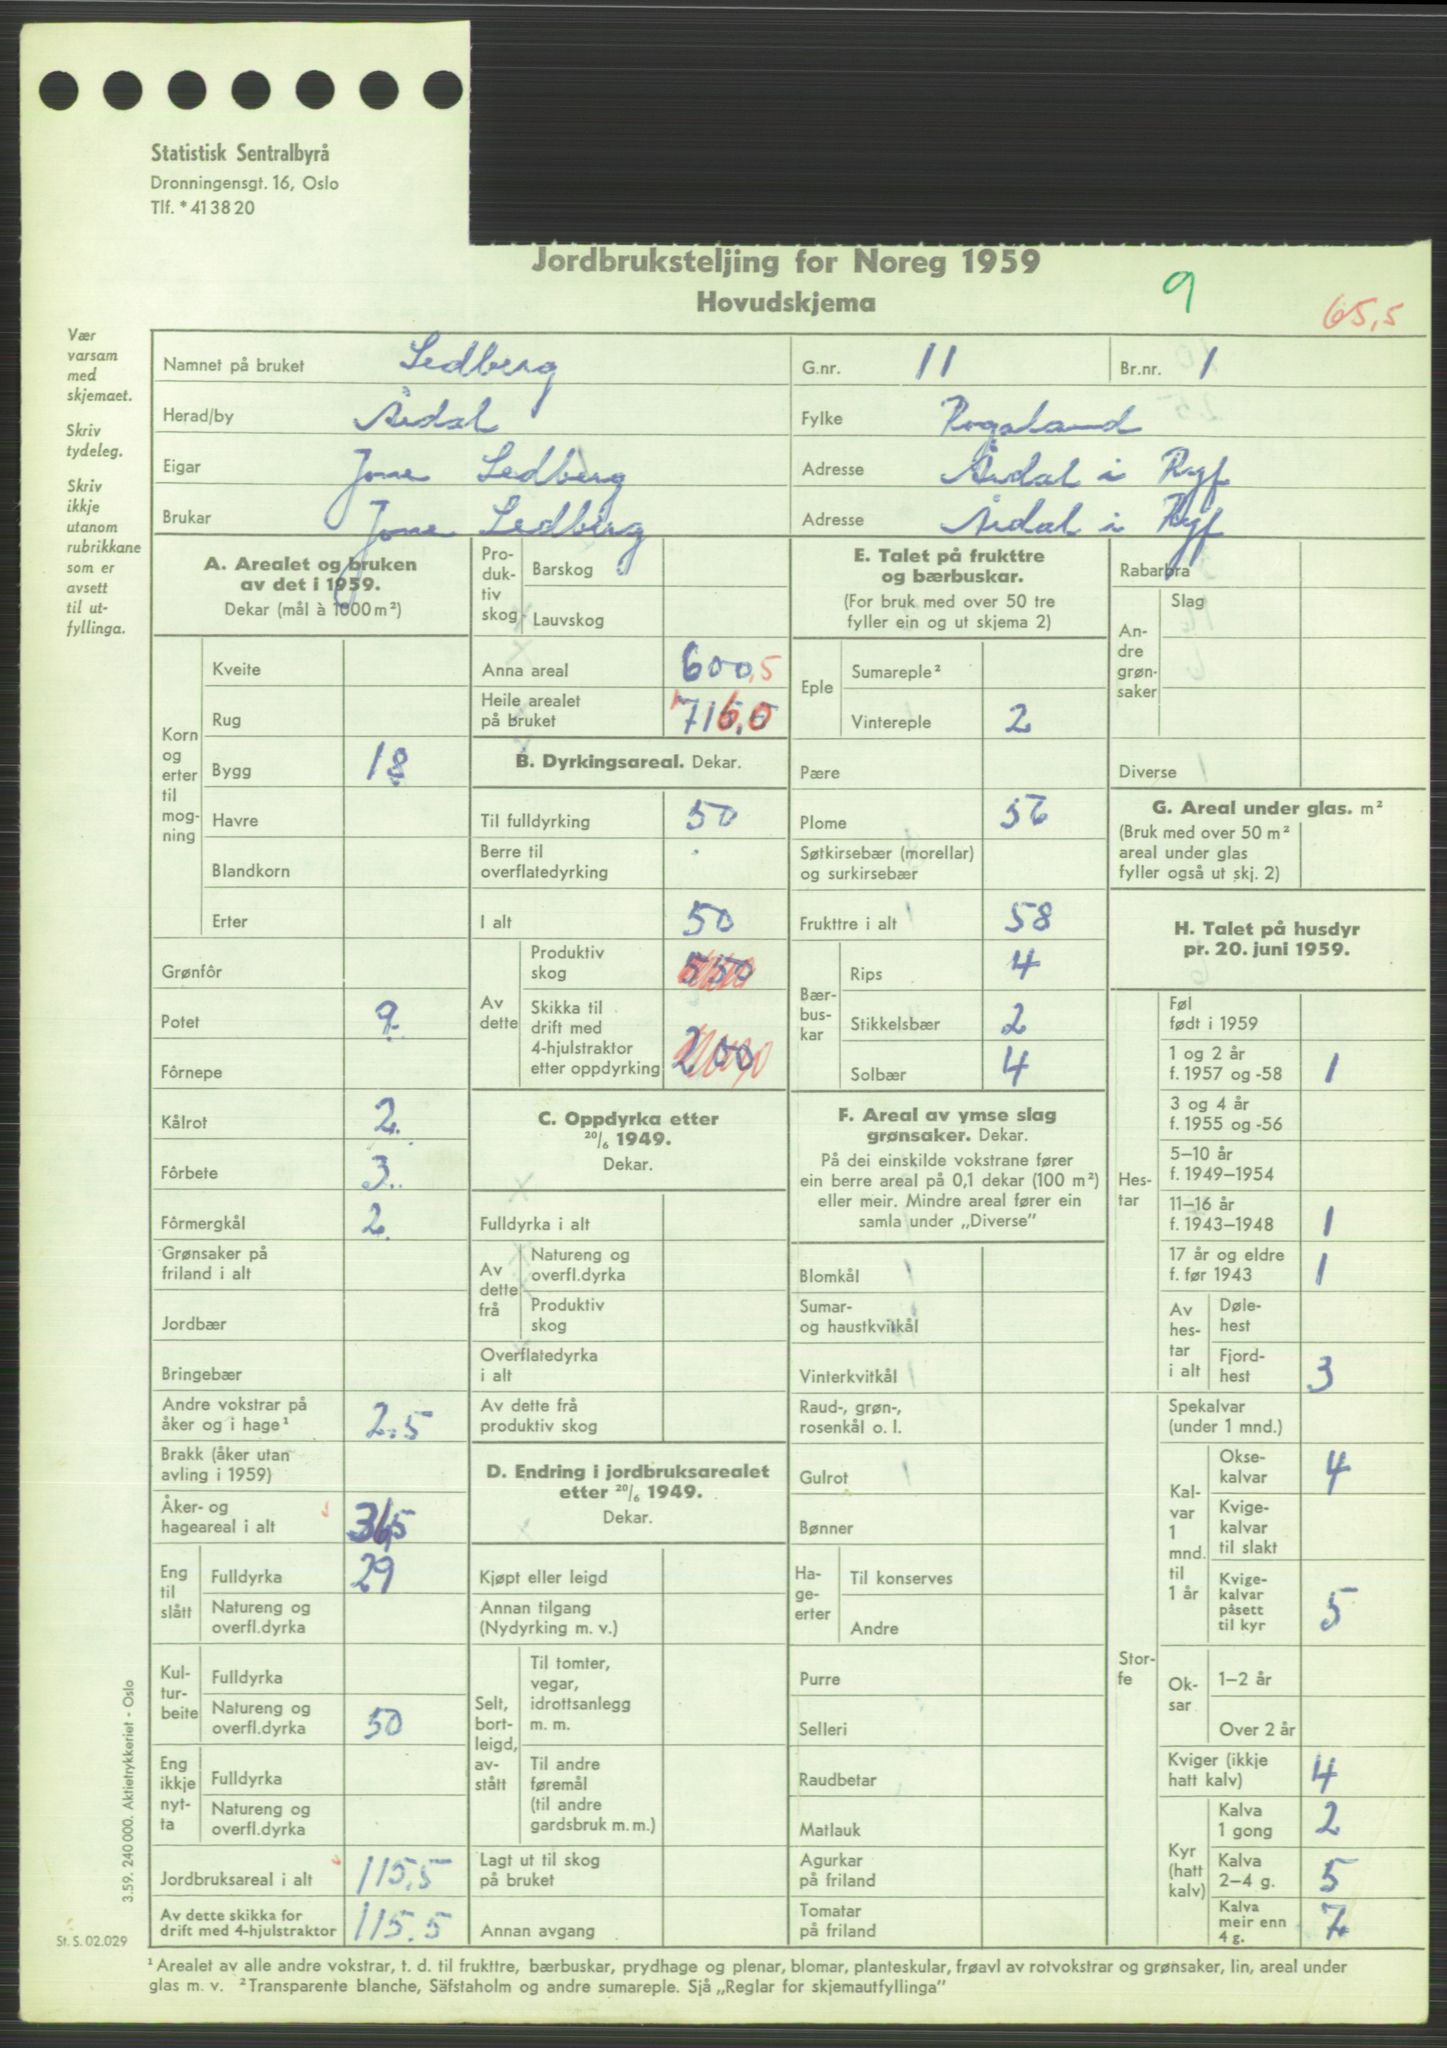 Statistisk Sentralbyrå
Dronningensgt. 16, Oslo
Tlf. * 41 38 20
Jordbruksteljing for Noreg 1959
Hovudskjema
9
65,5
Vær
varsam
med
skjemaet.
Skriv
tydeleg.
Skriv
ikkje
utanom
rubrikkane
som er
avsett
til ut-
fyllinga.
Namnet på bruket Ledberg G.nr. 11 Br.nr. 1
Herad/by Årdal Fylke Rogaland
Eigar Jone Ledberg Adresse Årdal i Ryf
Brukar Jone Ledberg Adresse Årdal i Ryf
A. Arealet og bruken
av det i 1959.
Dekar (mål à 1000 m²)
Korn
og
erter
til
mog-
ning
Kveite
Rug
Bygg 18
Havre
Blandkorn
Erter
Grønfôr
Potet 9
Fôrnepe
Kålrot 2
Fôrbete 3
Fôrmergkål 2
Grønsaker på
friland i alt
Jordbær
Bringebær
Andre vokstrar på
åker og i hage¹ 2.5
Brakk (åker utan
avling i 1959)
Åker- og
hageareal i alt 36,5
Eng
til
slått
Fulldyrka 29
Natureng og
overfl.dyrka
Kul-
tur-
beite
Fulldyrka
Natureng og
overfl.dyrka 50
Eng
ikkje
nyt-
ta
Fulldyrka
Natureng og
overfl.dyrka
Jordbruksareal i alt 115.5
Av dette skikka for
drift med 4-hjulstraktor 115.5
Pro-
duk-
tiv
skog
Barskog
Lauvskog
Anna areal 600,5
Heile arealet
på bruket 716,0
B. Dyrkingsareal. Dekar.
Til fulldyrking 50
Berre til
overflatedyrking
I alt 50
Av
dette
Produktiv
skog
Skikka til
drift med
4-hjulstraktor
etter oppdyrking
C. Oppdyrka etter
20/6 1949.
Dekar.
Fulldyrka i alt
Av
dette
frå
Natureng og
overfl.dyrka
Produktiv
skog
Overflatedyrka
i alt
Av dette frå
produktiv skog
D. Endring i jordbruksarealet
etter 20/6 1949.
Dekar.
Kjøpt eller leigd
Annan tilgang
(Nydyrking m. v.)
Selt,
bort-
leigd,
av-
stått
Til tomter,
vegar,
idrottsanlegg
m. m.
Til andre
føremål
(til andre
gardsbruk m. m.)
Lagt ut til skog
på bruket
Annan avgang
E. Talet på frukttre
og bærbuskar.
(For bruk med over 50 tre
fyller ein og ut skjema 2)
Eple
Sumareple²
Vintereple 2
Pære
Plome 56
Søtkirsebær (morellar)
og surkirsebær
Frukttre i alt 58
Bær-
bus-
kar
Rips 4
Stikkelsbær 2
Solbær 4
F. Areal av ymse slag
grønsaker. Dekar.
På dei einskilde vokstrane fører
ein berre areal på 0,1 dekar (100 m²)
eller meir. Mindre areal fører ein
samla under „Diverse”
Blomkål
Sumar-
og haustkvitkål
Vinterkvitkål
Raud-, grøn-,
rosenkål o. l.
Gulrot
Bønner
Ha-
ge-
erter
Til konserves
Andre
Purre
Selleri
Raudbetar
Matlauk
Agurkar
på friland
Tomatar
på friland
Rabarbra
An-
dre
grøn-
saker
Slag
Diverse
G. Areal under glas. m²
(Bruk med over 50 m²
areal under glas
fyller også ut skj. 2)
H. Talet på husdyr
pr. 20. juni 1959.
Hes-
tar
Føl
født i 1959
1 og 2 år
f. 1957 og -58 1
3 og 4 år
f. 1955 og -56
5–10 år
f. 1949–1954
11–16 år
f. 1943–1948 1
17 år og eldre
f. før 1943 1
Av
hes-
tar
i alt
Døle-
hest
Fjord-
hest 3
Stor-
fe
Spekalvar
(under 1 mnd.)
Kal-
var
1
mnd.
til
1 år
Okse-
kalvar 4
Kvige-
kalvar
til slakt
Kvige-
kalvar
påsett
til kyr 5
Ok-
sar
1–2 år
Over 2 år
Kviger (ikkje
hatt kalv) 4
Kyr
(hatt
kalv)
Kalva
1 gong 2
Kalva
2–4 g. 5
Kalva
meir enn
4 g. 7
3.59. 240 000. Aktietrykkeriet - Oslo
St. S. 02.029
¹ Arealet av alle andre vokstrar, t. d. til frukttre, bærbuskar, prydhage og plenar, blomar, planteskular, frøavl av rotvokstrar og grønsaker, lin, areal under
glas m. v. ² Transparente blanche, Säfstaholm og andre sumareple. Sjå „Reglar for skjemautfyllinga”